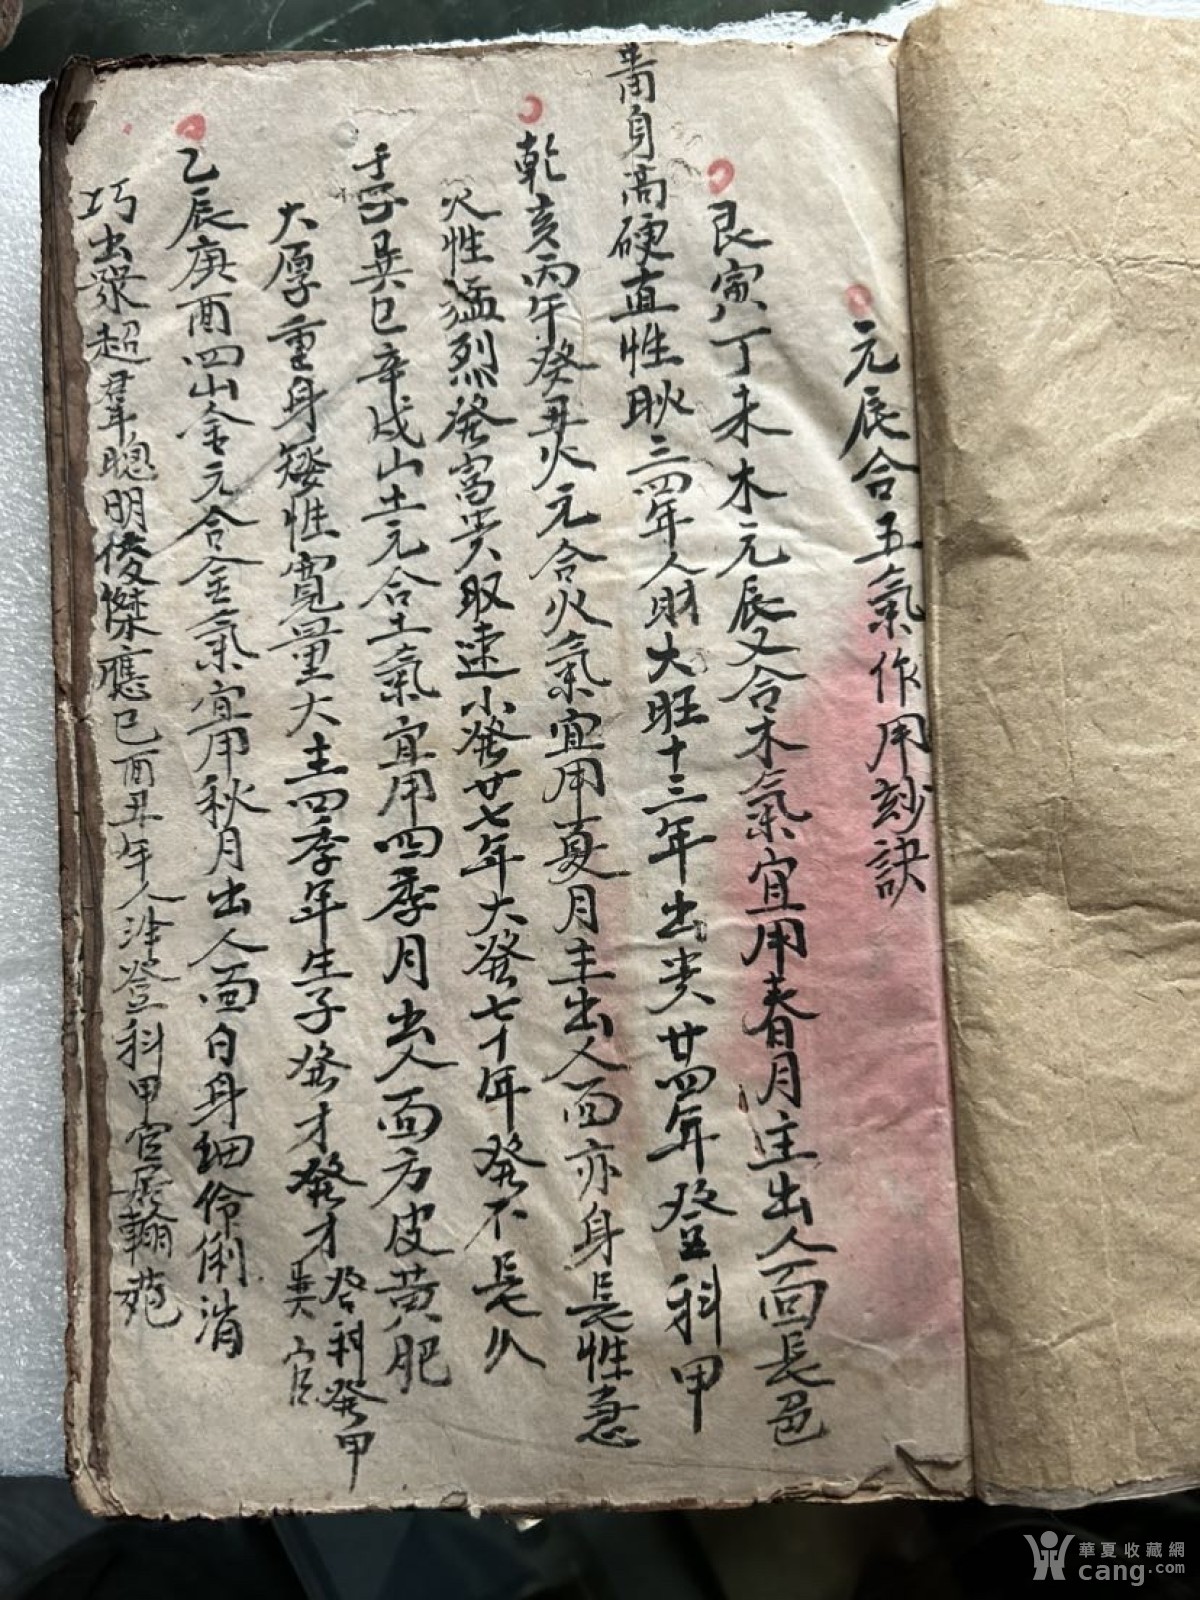 元辰合五氣作用妙訣
艮寅丁未木元辰又合木氣宜用春月主出人面長邑
身高硬直性耿三四年人財大旺十三年出贵廿四年登科甲
乾亥丙午癸丑火元合火氣宜用夏月主出人面亦身長性急
火性猛烈發富贵取速小發廿七年大發七十年發不長久
壬子巽巳辛戌山土元合土氣宜用四季月出人面方皮黄肥
大厚重身矮性寬量大主四季年生子發才發才登科發甲官
乙辰庚酉四山金元合金氣宜用秋月出人面白身细伶俐消
巧出衆超羣聰明俊傑應巳酉丑年人登科甲官居翰苑
華夏收藏網
cang.com